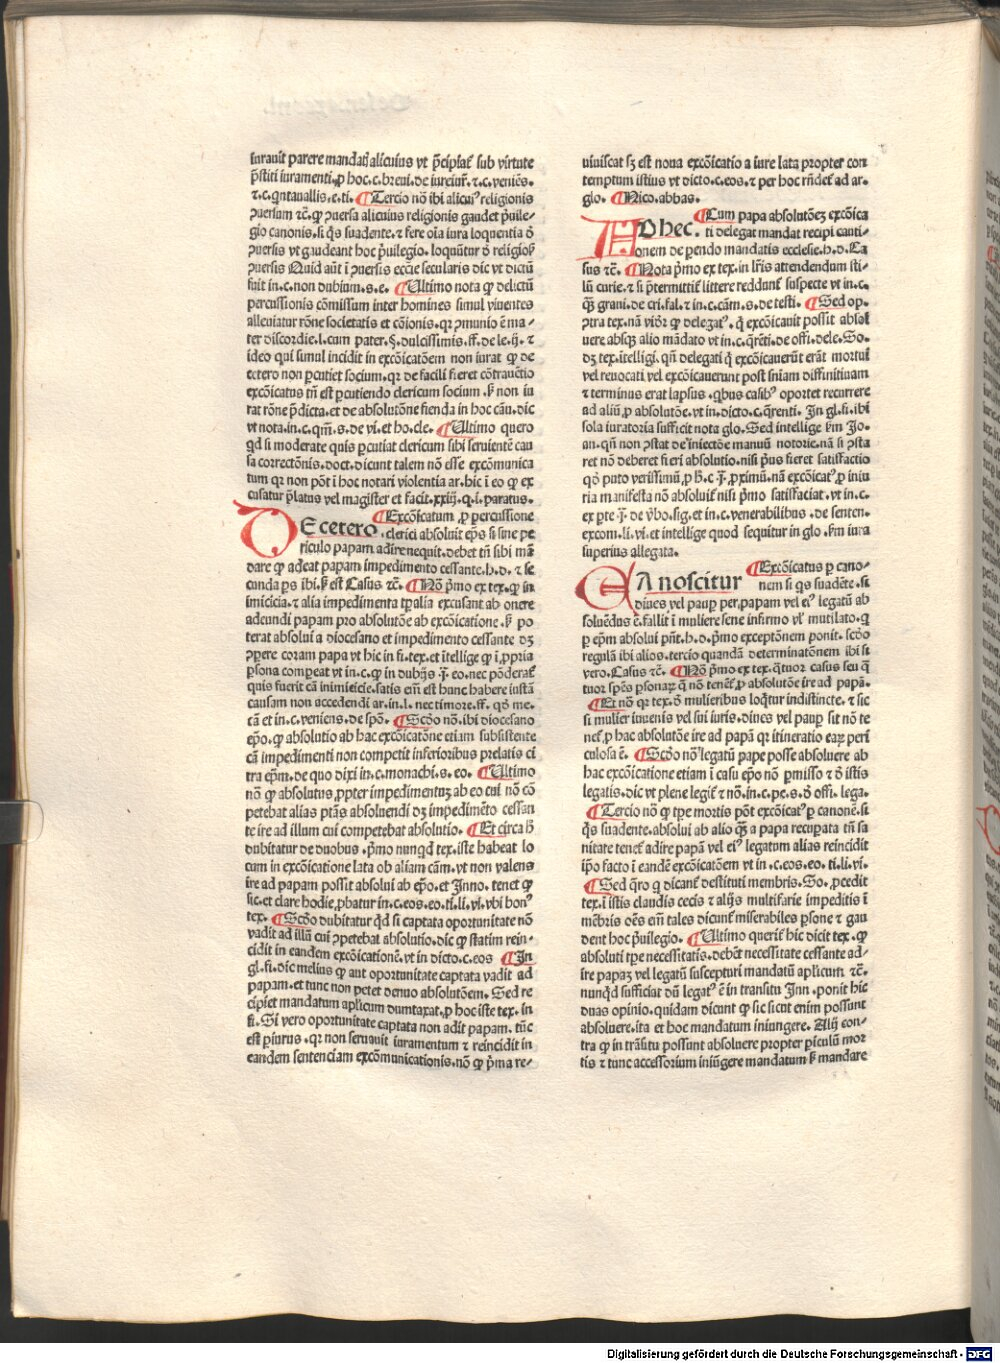 iurauit parere mandatꝭ alicuius vt p̄cipiat̄ sub virtute
p̄stiti iuramenti. ꝓ hoc .c. breui. de iureiur̄. ⁊ .c. veniēs.
⁊ .c. qntauallis. e. ti. ¶ Tercio nō ibi alicui⁹ religionis
ꝯuersum ⁊c̄. ꝙ ꝯuersa alicuius religionis gaudet p̄uile-
gio canonis. si q̄s suadente. ⁊ fere oīa iura loquentia ō
ꝯuersis vt gaudeant hoc p̄uilegio. loquūtur ō religiosꝭ
ꝯuersis Quid aūt ī ꝯuersis eccīe secularis dic vt dictū
fuit in .c. non dubium. s. e. ¶ Ultimo nota ꝙ delictū
percussionis cōmissum inter homines simul viuentes
alleuiatur rōne societatis et cōionis. qꝛ ꝯmunio ē ma-
ter discordie. l. cum pater. §. dulcissimis. ff. de le. ij. ⁊
ideo qui simul incidit in excōicatōem non iurat ꝙ de
cetero non ꝑcutiet socium. qꝛ de facili fieret cōtrauctio
excōicatus tn̄ est ꝑcutiendo clericum socium. s̄ non iu
rat rōne p̄dicta. et de absolutōne fienda in hoc cāu. dic
vt nota. in .c. qm̄. s. de vi. et ho. cle. ¶ Ultimo quero
qd si moderate quis ꝑcutiat clericum sibi seruientē cau
sa correctōnis. doct. dicunt talem nō esse excōmunica
tum qꝛ non pōt ī hoc notari violentia ar. hic ī eo ꝙ ex
cusatur p̄latus vel magister et facit. xxiij. q. i. paratus.
¶ Excōicatum ꝓ percussione
DE cetero. clerici absoluit ep̄s si sine pe
riculo papam adire nequit. debet tn̄ sibi mā
dare ꝙ adeat papam impedimento cessante. h. d. ⁊ se
cunda ꝑs ibi. s̄ est Casus ⁊c̄. ¶ Nō p̄mo ex tex. ꝙ in
imicicia. ⁊ alia impedimenta tꝑalia excusant ab onere
adeundi papam pro absolutōe ab excōicatione. s̄ po
terat absolui a diocesano et impedimento cessante dꝫ
ꝯꝑere coram papa vt hic in fi. tex. et ītellige ꝙ ī ꝓpria
ꝑsona compeat vt in .c. ꝙ in dubijs. j. eo. nec pōderat̄
quis fuerit cā inimicicie. satis em̄ est hanc habere iustā
causam non accedendi ar. in. l. nec timore. ff. qō me.
cā et in .c. veniens. de spō. ¶ Scdo nō. ibi diocesano
ep̄o. ꝙ absolutio ab hac excōicatōne etiam subsistente
cā impedimenti non competit inferioribus prelatis ci
tra ep̄m. de quo dixi in .c. monachi. s. eo. ¶ Ultimo
nō ꝙ absolutus ꝓpter impedimentuꝫ ab eo cui nō cō
petebat alias ptās absoluendi dꝫ impedimēto cessan
te ire ad illum cui competebat absolutio. ¶ Et circa h̄
dubitatur de duobus. p̄mo nunqd tex. iste habeat lo
cum in excōicatione lata ob aliam cām. vt non valens
ire ad papam possit absolui ab ep̄o. et Inno. tenet ꝙ
sic. et clare hodie ꝓbatur in .c. eos. eo. ti. li. vi. vbi bon⁹
tex. ¶ Scdo dubitatur qd si captata oportunitate nō
vadit ad illū cui ꝯpetebat absolutio. dic ꝙ statim rein-
cidit in eandem excōicationē. vt in dicto. c. eos ¶ In
gl. fi. dic melius ꝙ aut oportunitate captata vadit ad
papam. et tunc non petet denuo absolutōem. Sed re
cipiet mandatum aplicum dumtaxat. ꝓ hoc iste tex. in
fi. Si vero oportunitate captata non adit papam. tūc
est ꝑiurus. qꝛ non seruauit iuramentum ⁊ reincidit in
eandem sentenciam excōmunicationis. nō ꝙ p̄ma re-
uiuiscat sꝫ est noua excōicatio a iure lata propter con
temptum istius vt dicto. c. eos. ⁊ per hoc rn̄det̄ ad ar.
glo. ¶ Nico. abbas.
¶ Cum papa absolutōeꝫ excōica
AD hec. ti delegat mandat recipi cauti-
onem de pendo mandatis ecclesie. h. d. Ca
sus ⁊c̄. ¶ Nota p̄mo ex tex. in lr̄is attendendum sti-
lū curie. ⁊ si p̄termittit̄ littere reddunt̄ suspecte vt in .c.
q̄ꝫ graui. de cri. fal. ⁊ in .c. cām. s. de testi. ¶ Sed op-
ꝯtra tex. nā vīdr̄ ꝙ delegat⁹. q̄ excōicauit possit absol
uere absqꝫ alio mādato vt in .c. q̄rēti. de offi. dele. So.
dꝫ tex. ītelligi. qn̄ delegati q̄ excōicauerūt erāt mortui
vel reuocati vel excōicauerunt post sn̄iam diffinitiuam
⁊ terminus erat lapsus. qbus casib⁹ oportet recurrere
ad aliū ꝓ absolutōe. vt in. dicto. c. q̄renti. In gl. fi. ibi
sola iuratoria sufficit nota glo. Sed intellige s̄m Jo-
an. qn̄ non ꝯstat de īniectōe manuū notorie. nā si ꝯsta
ret nō deberet fieri absolutio. nisi p̄us fieret satisfactio
qō puto verissimū ꝓ h̄ .c. j. ꝓximū. nā excōicat⁹ ꝓ iniu
ria manifesta nō absoluit̄ nisi p̄mo satisfaciat. vt in .c.
ex ꝑte. j. de v̄bo. sig. et in .c. venerabilibus. de senten.
excom. li. vi. et intellige quod sequitur in glo. s̄m iura
superius allegata.
¶ Excōicatus ꝑ cano-
EA noscitur nem si qs suadēte. si
diues vel pauꝑ per. papam vel ei⁹ legatū ab
soluēdus ē. fallit ī muliere sene infirmo vl̓ mutilato. q̄
ꝑ ep̄m absolui pn̄t. h. d. p̄mo exceptōnem ponit. scdo
regulā ibi alios. tercio quandā determinatōnem ibi si
vero. Casus ⁊c̄. ¶ Nō p̄mo ex tex. q̄tuor casus seu q̄
tuor spēs ꝑsonaꝝ q̄ nō tenēt̄ ꝓ absolutōe ire ad papā.
¶ Et nō qꝛ tex. ō mulieribus loqtur indistincte. ⁊ sic
si mulier iuuenis vel sui iuris. diues vel pauꝑ sit nō te
net̄ ꝓ hac absolutōe ire ad papā qꝛ itineratio eaꝝ peri
culosa ē. ¶ Scdo nō legatū pape posse absoluere ab
hac excōicatione etiam ī casu ep̄o nō ꝑmisso ⁊ ō istis
legatis. dic vt plene legit̄ ⁊ nō. in .c. pe. s. ō offi. lega.
¶ Tercio nō ꝙ tꝑe mortis pōt excōicat⁹ ꝑ canonē. si
q̄s suadente. absolui ab alio q̄ꝫ a papa recuꝑata tn̄ sa
nitate tenet̄ adire papā vel ei⁹ legatum alias reincidit
ip̄o facto ī eandē excōicatōem vt in .c. eos. eo. ti. li. vi.
¶ Sed q̄ro q̄ dicant̄ destituti membris. So. ꝓcedit
tex. ī istis claudis cecis ⁊ alijs multifarie impeditis ī
mēbris oēs em̄ tales dicunt̄ miserabiles ꝑsone ⁊ gau
dent hoc p̄uilegio. ¶ Ultimo querit̄ hic dicit tex. ꝙ
absoluti tꝑe necessitatis. debēt necessitate cessante ad-
ire papaꝫ vel legatū suscepturi mandatū aplicum ⁊c̄.
nunqd sufficiat dū legat⁹ ē in transitu Inn. ponit hic
duas opinio. quidam dicunt ꝙ sic sicut enim possunt
absoluere. ita et hoc mandatum iniungere. Alij con-
tra ꝙ in trāsitu possunt absoluere propter piculū mor
tis ⁊ tunc accessorium iniūgere mandatum s̄ mandare
Digitalisierung gefördert durch die Deutsche Forschungsgemeinschaft - DFG